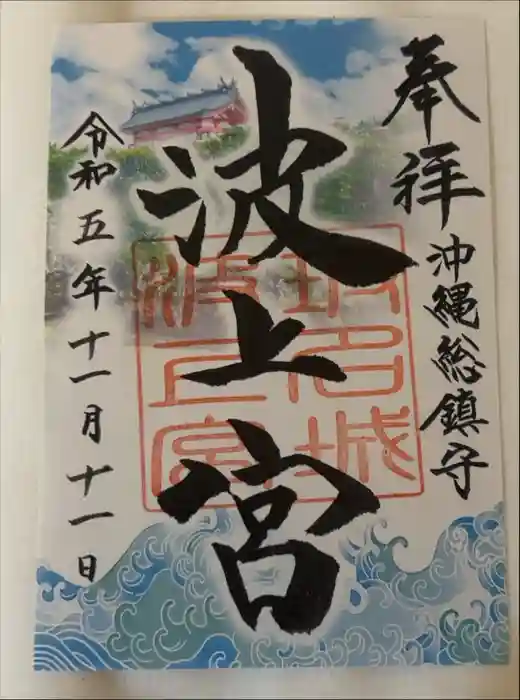 奉拝
沖縄総鎮守
波上宮
琉球名城
波上宮
令和五年十一月十一日